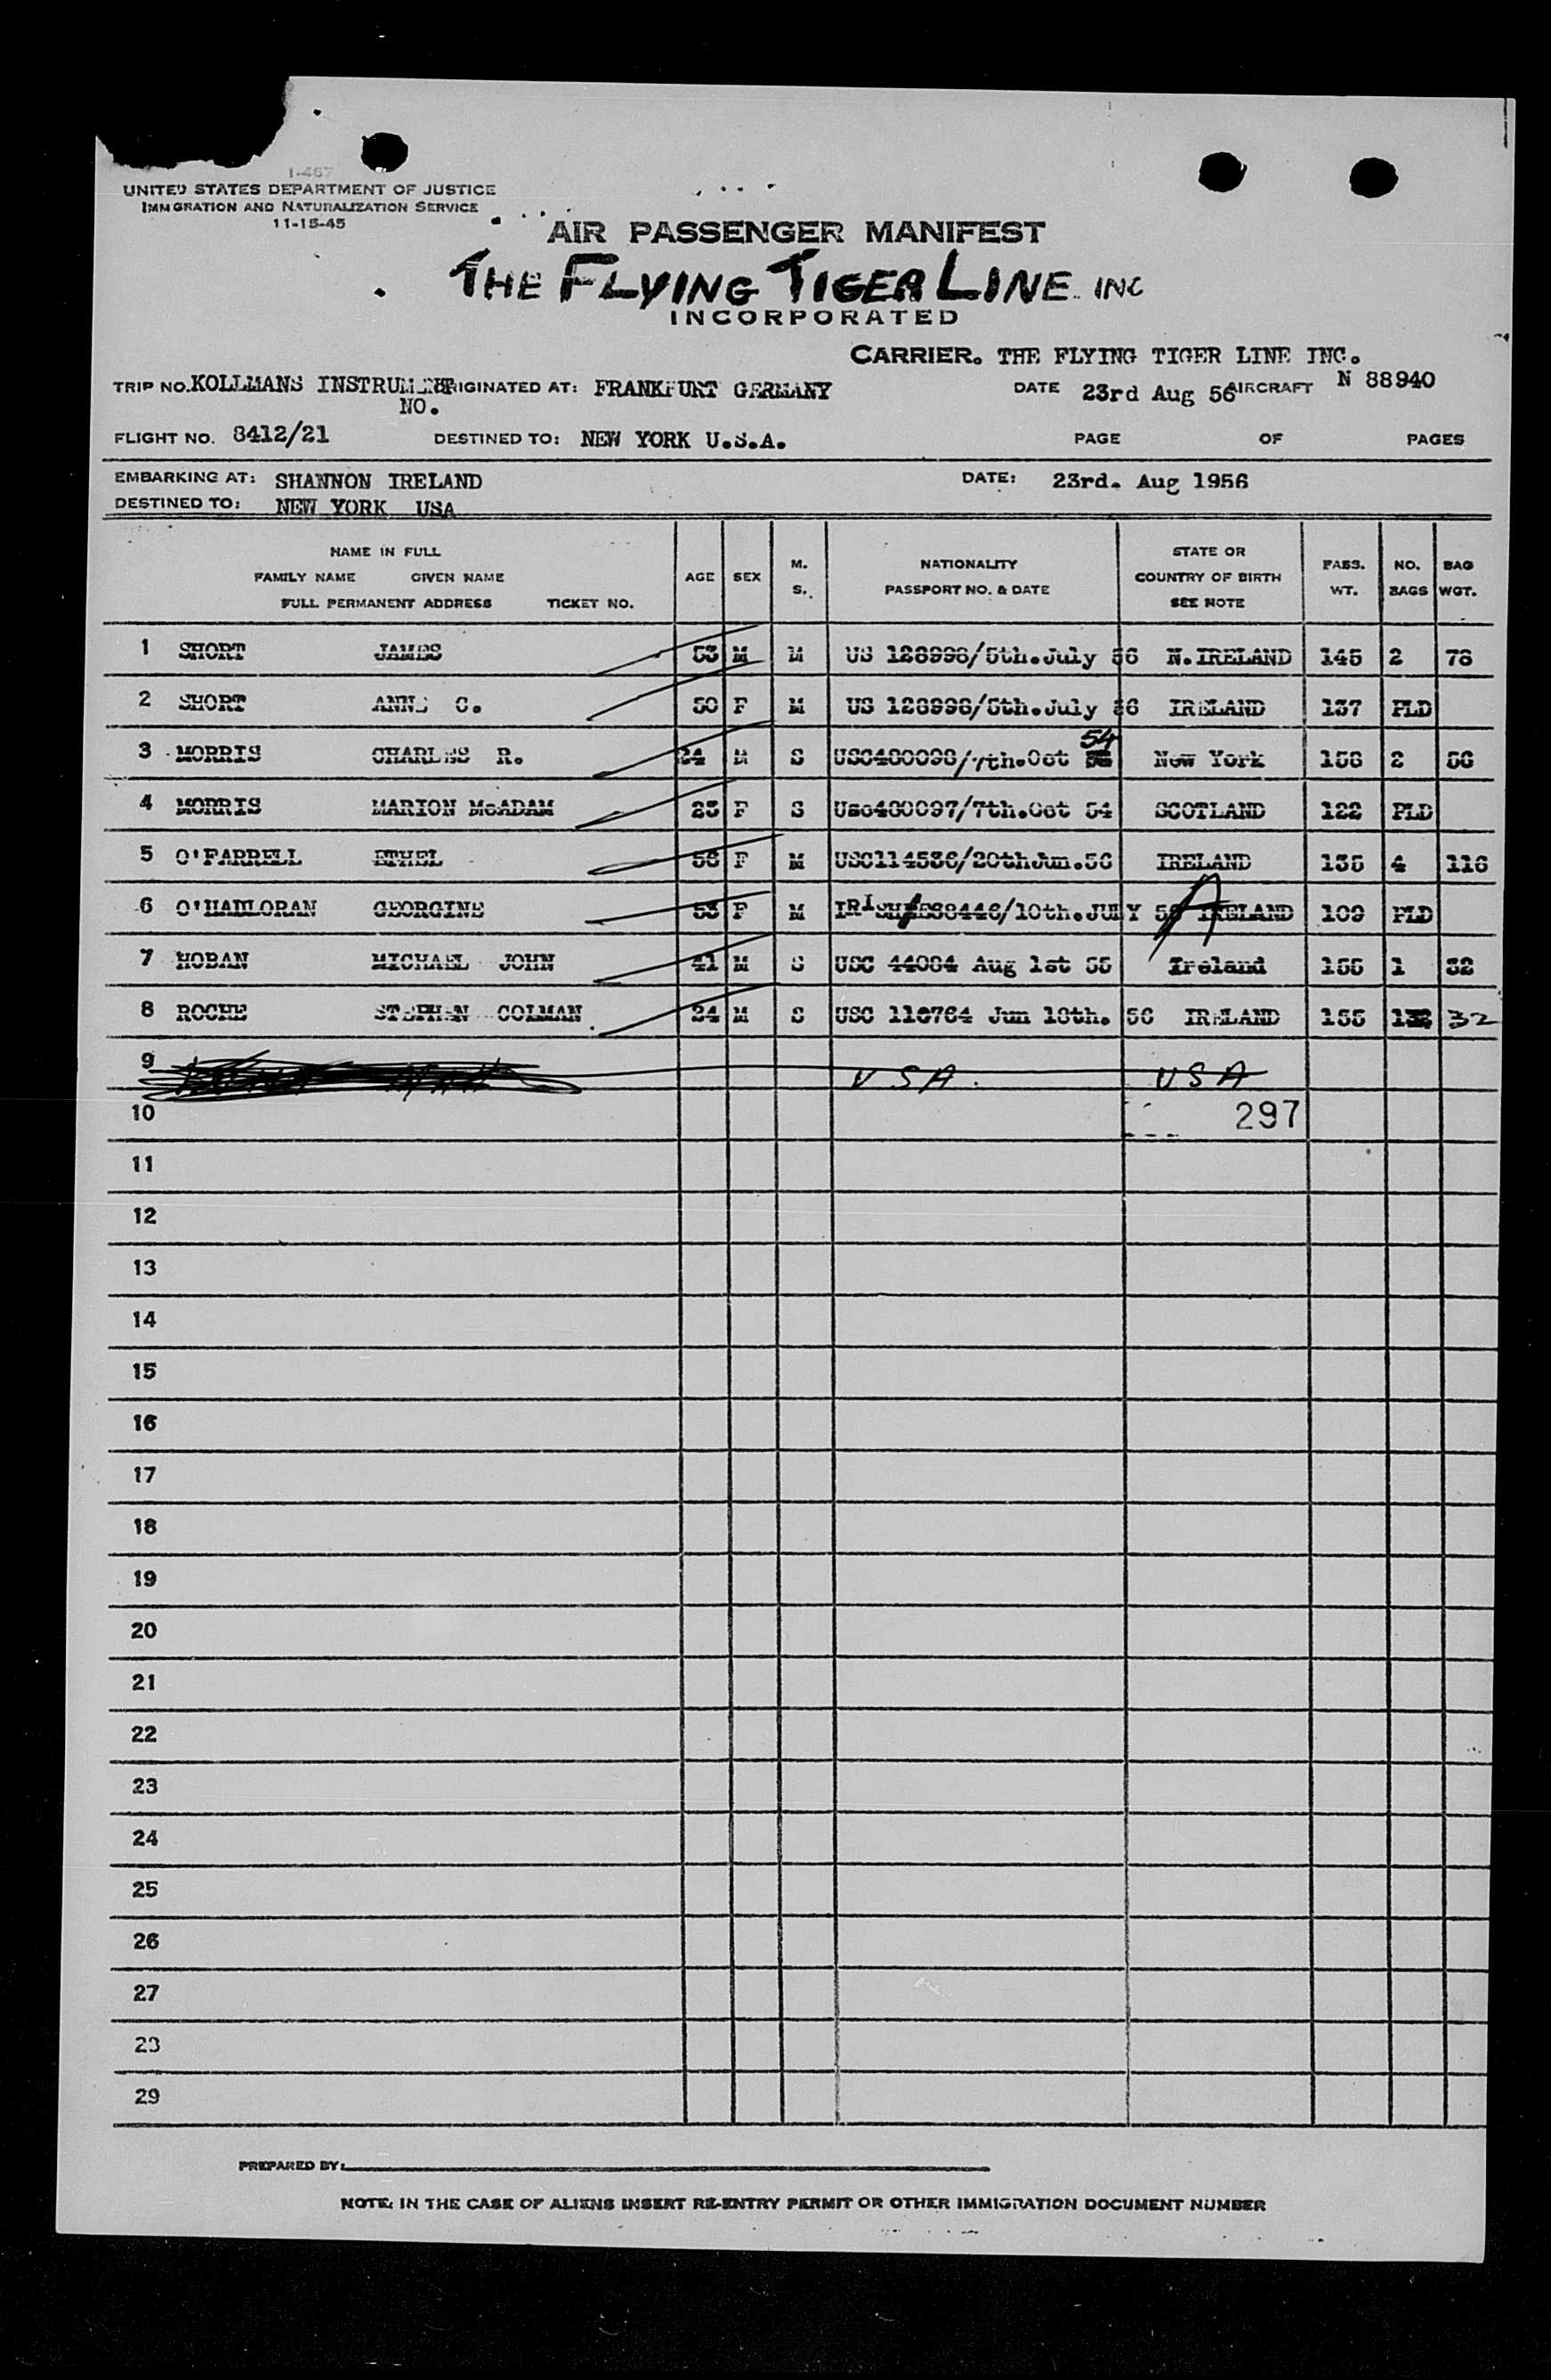 1-467
UNITED STATES DEPARTMENT OF JUSTICE
IMMIGRATION AND NATURALIZATION SERVICE
11-15-45
AIR PASSENGER MANIFEST
THE FLYING TIGER LINE. INC
INCORPORATED
CARRIER. THE FLYING TIGER LINE INC.
TRIP NO. KOLLMANS INSTRUMENT ORIGINATED AT: FRANKFURT GERMANY DATE 23rd Aug 56 AIRCRAFT N 88940
NO.
FLIGHT NO. 8412/21 DESTINED TO: NEW YORK U.S.A. PAGE OF PAGES
EMBARKING AT: SHANNON IRELAND DATE: 23rd. Aug 1956
DESTINED TO: NEW YORK USA
NAME IN FULL
FAMILY NAME GIVEN NAME
FULL PERMANENT ADDRESS TICKET NO.
AGE SEX M. S.
NATIONALITY
PASSPORT NO. & DATE
STATE OR
COUNTRY OF BIRTH
SEE NOTE
PASS. WT. NO. BAGS BAG WGT.
1 SHORT JAMES 53 M M US 128998/5th.July 56 N.IRELAND 145 2 78
2 SHORT ANNE C. 50 F M US 128998/5th.July 56 IRELAND 137 PLD
3 MORRIS CHARLES R. 24 M S USC480098/7th.Oct 54 New York 158 2 56
4 MORRIS MARION McADAM 23 F S Usc480097/7th.Oct 54 SCOTLAND 122 PLD
5 O'FARRELL ETHEL 56 F M USC114536/20thJun.56 IRELAND 135 4 116
6 O'HALLORAN GEORGINE 53 F M IRISH 10th.JULY 56 IRELAND 109 PLD
A
7 HOBAN MICHAEL JOHN 41 M S USC 44084 Aug 1st 55 Ireland 155 1 32
8 ROCHE STEPHAN COLMAN 24 M S USC 110764 Jun 18th. 56 IRELAND 155 1 32
9 USA. USA
10 297
11
12
13
14
15
16
17
18
19
20
21
22
23
24
25
26
27
28
29
PREPARED BY:
NOTE: IN THE CASE OF ALIENS INSERT RE-ENTRY PERMIT OR OTHER IMMIGRATION DOCUMENT NUMBER